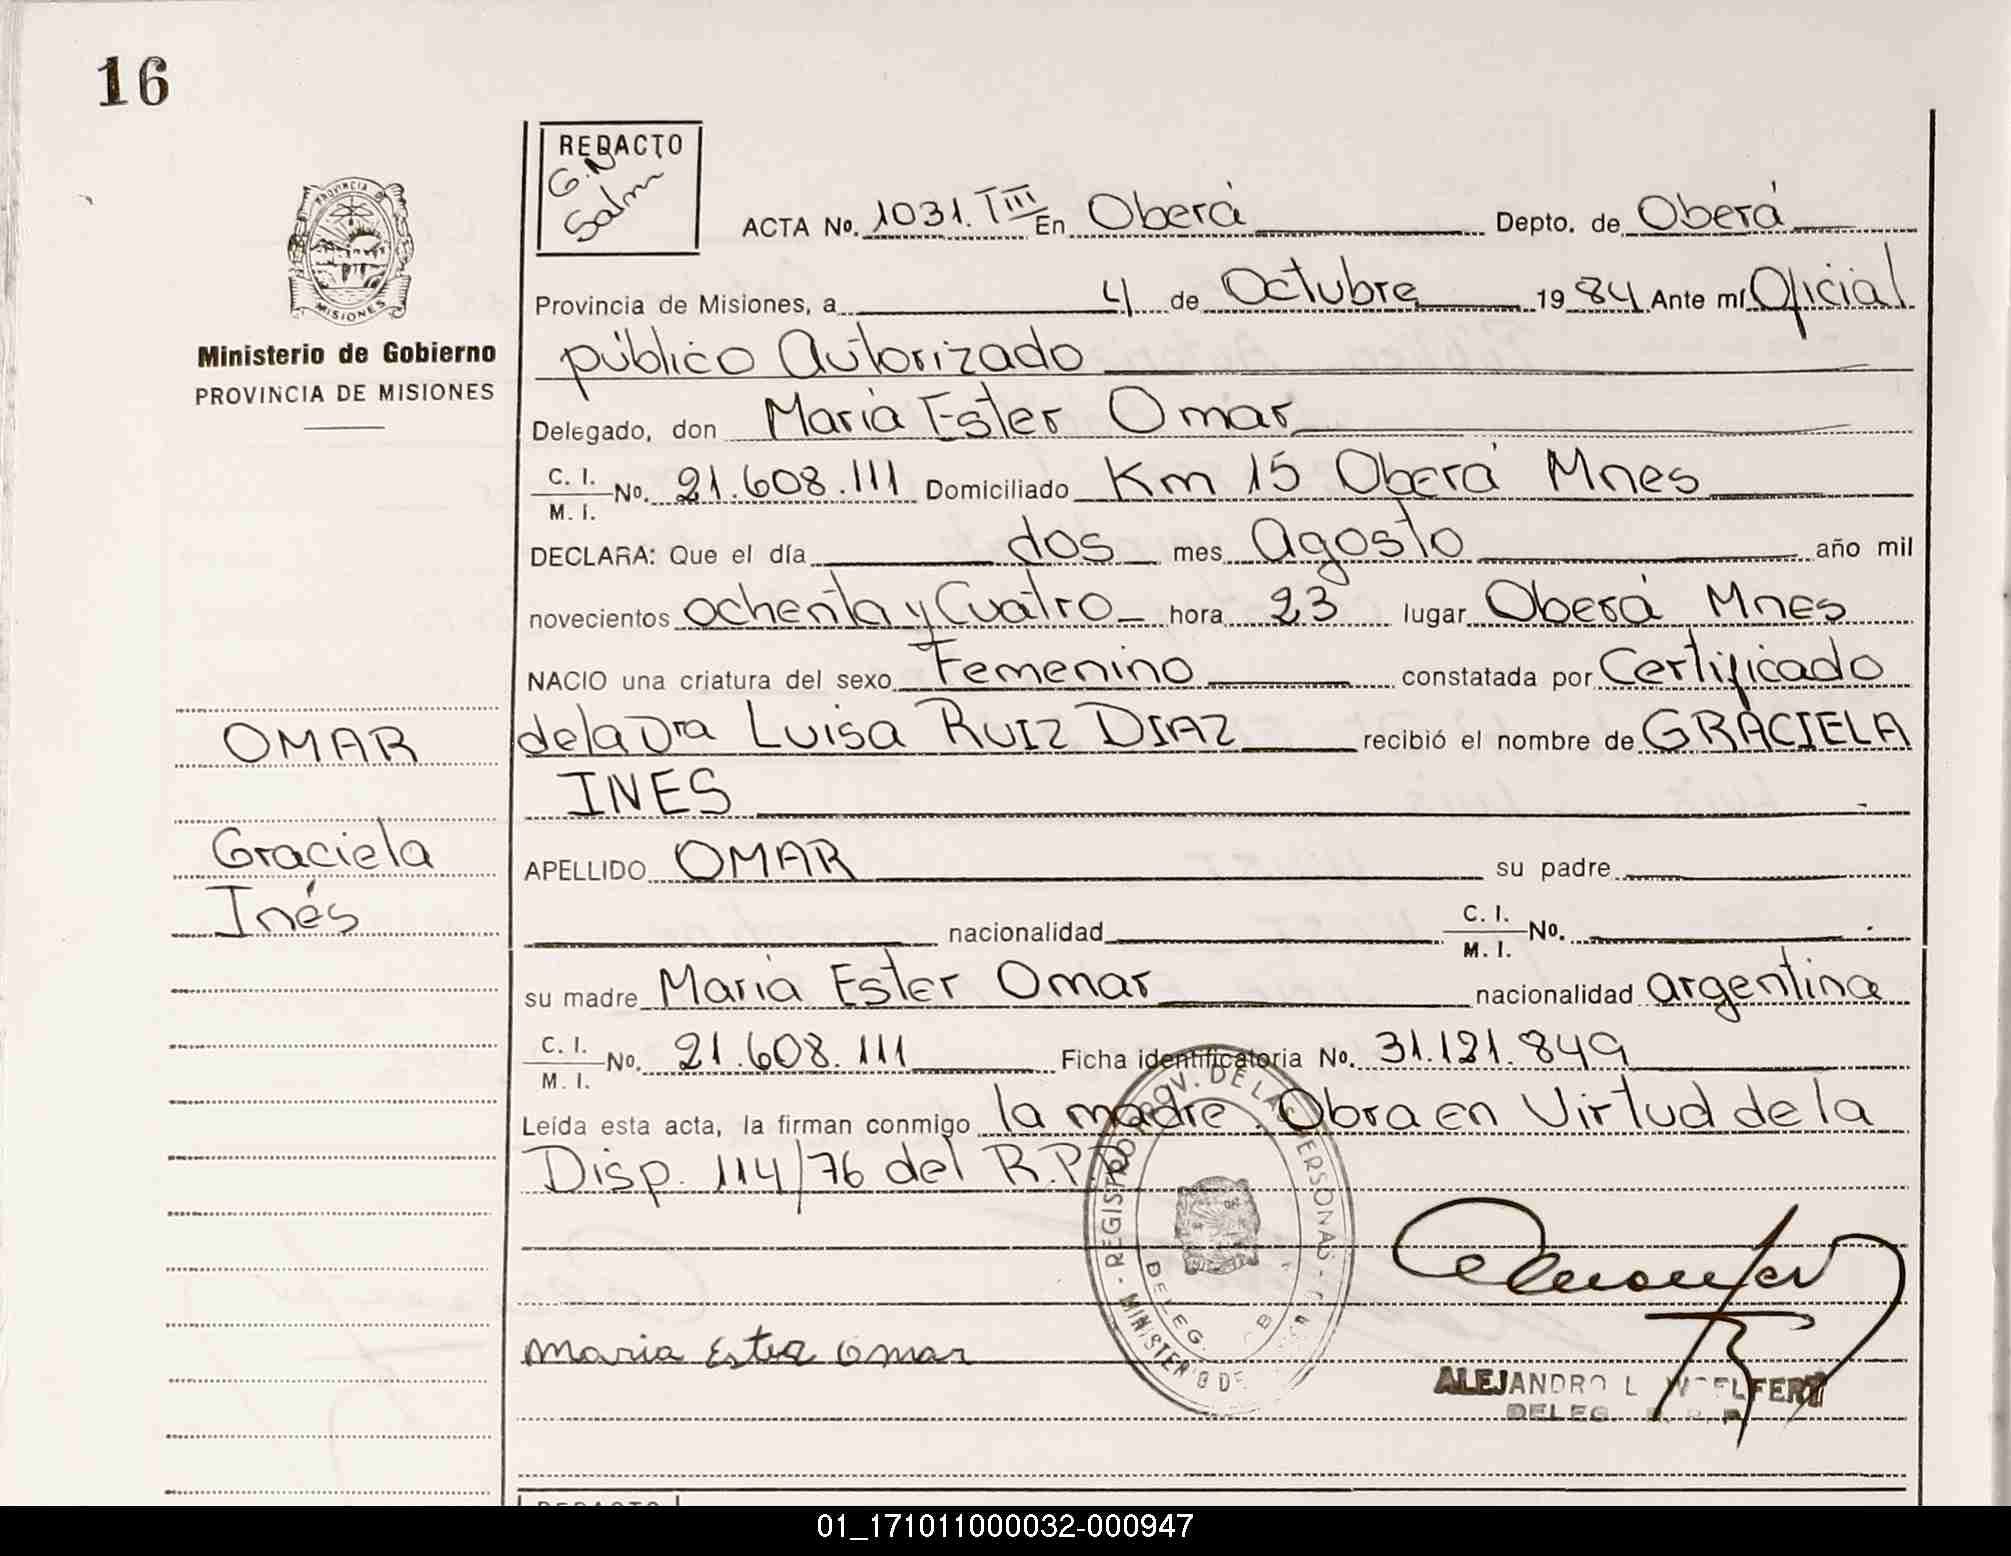 16
REDACTO
G.N
Salm
PROVINCIA DE
MISIONES
Ministerio de Gobierno
PROVINCIA DE MISIONES
ACTA No. 1031. TIII En Oberá Depto. de Oberá
Provincia de Misiones, a 4 de Octubre 1984 Ante mí Oficial
público Autorizado
Delegado, don María Ester Omar
C. I.
M. I. No. 21.608.111 Domiciliado Km 15 Oberá Mnes
DECLARA: Que el día dos mes Agosto año mil
novecientos ochenta y Cuatro hora 23 lugar Oberá Mnes
NACIO una criatura del sexo Femenino constatada por Certificado
OMAR
de la Dra Luisa RUIZ DIAZ recibió el nombre de GRACIELA
INES
Graciela
Inés
APELLIDO OMAR su padre
nacionalidad C. I.
M. I. No.
su madre María Ester Omar nacionalidad argentina
C. I.
M. I. No. 21.608.111 Ficha identificatoria No. 31.121.849
Leída esta acta, la firman conmigo la madre. Obra en Virtud de la
Disp. 114/76 del R.P.P
REGISTRO PROV. DE LAS PERSONAS
MINISTERIO DE
DELEG.
maria Ester Omar
ALEJANDRO L. WOELFERT
DELEG. R. P. P.
REDACTO
01_171011000032-000947